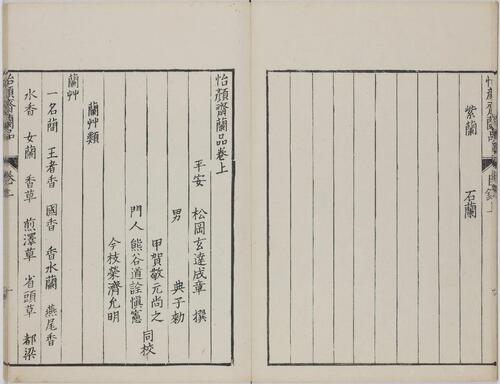 怡顏齋蘭品 目錄上
紫蘭 石蘭
怡顏齋蘭品卷上
平安 松岡玄達成章 撰
男 典子勅
甲賀敬元尚之
門人 熊谷道詮愼憲 同校
今枝榮濟允明
蘭艸類
蘭艸
一名蕳 王者香 國香 香水蘭 燕尾香
水香 女蘭 香草 煎澤草 省頭草 都梁
怡顏齋蘭品 卷上 一